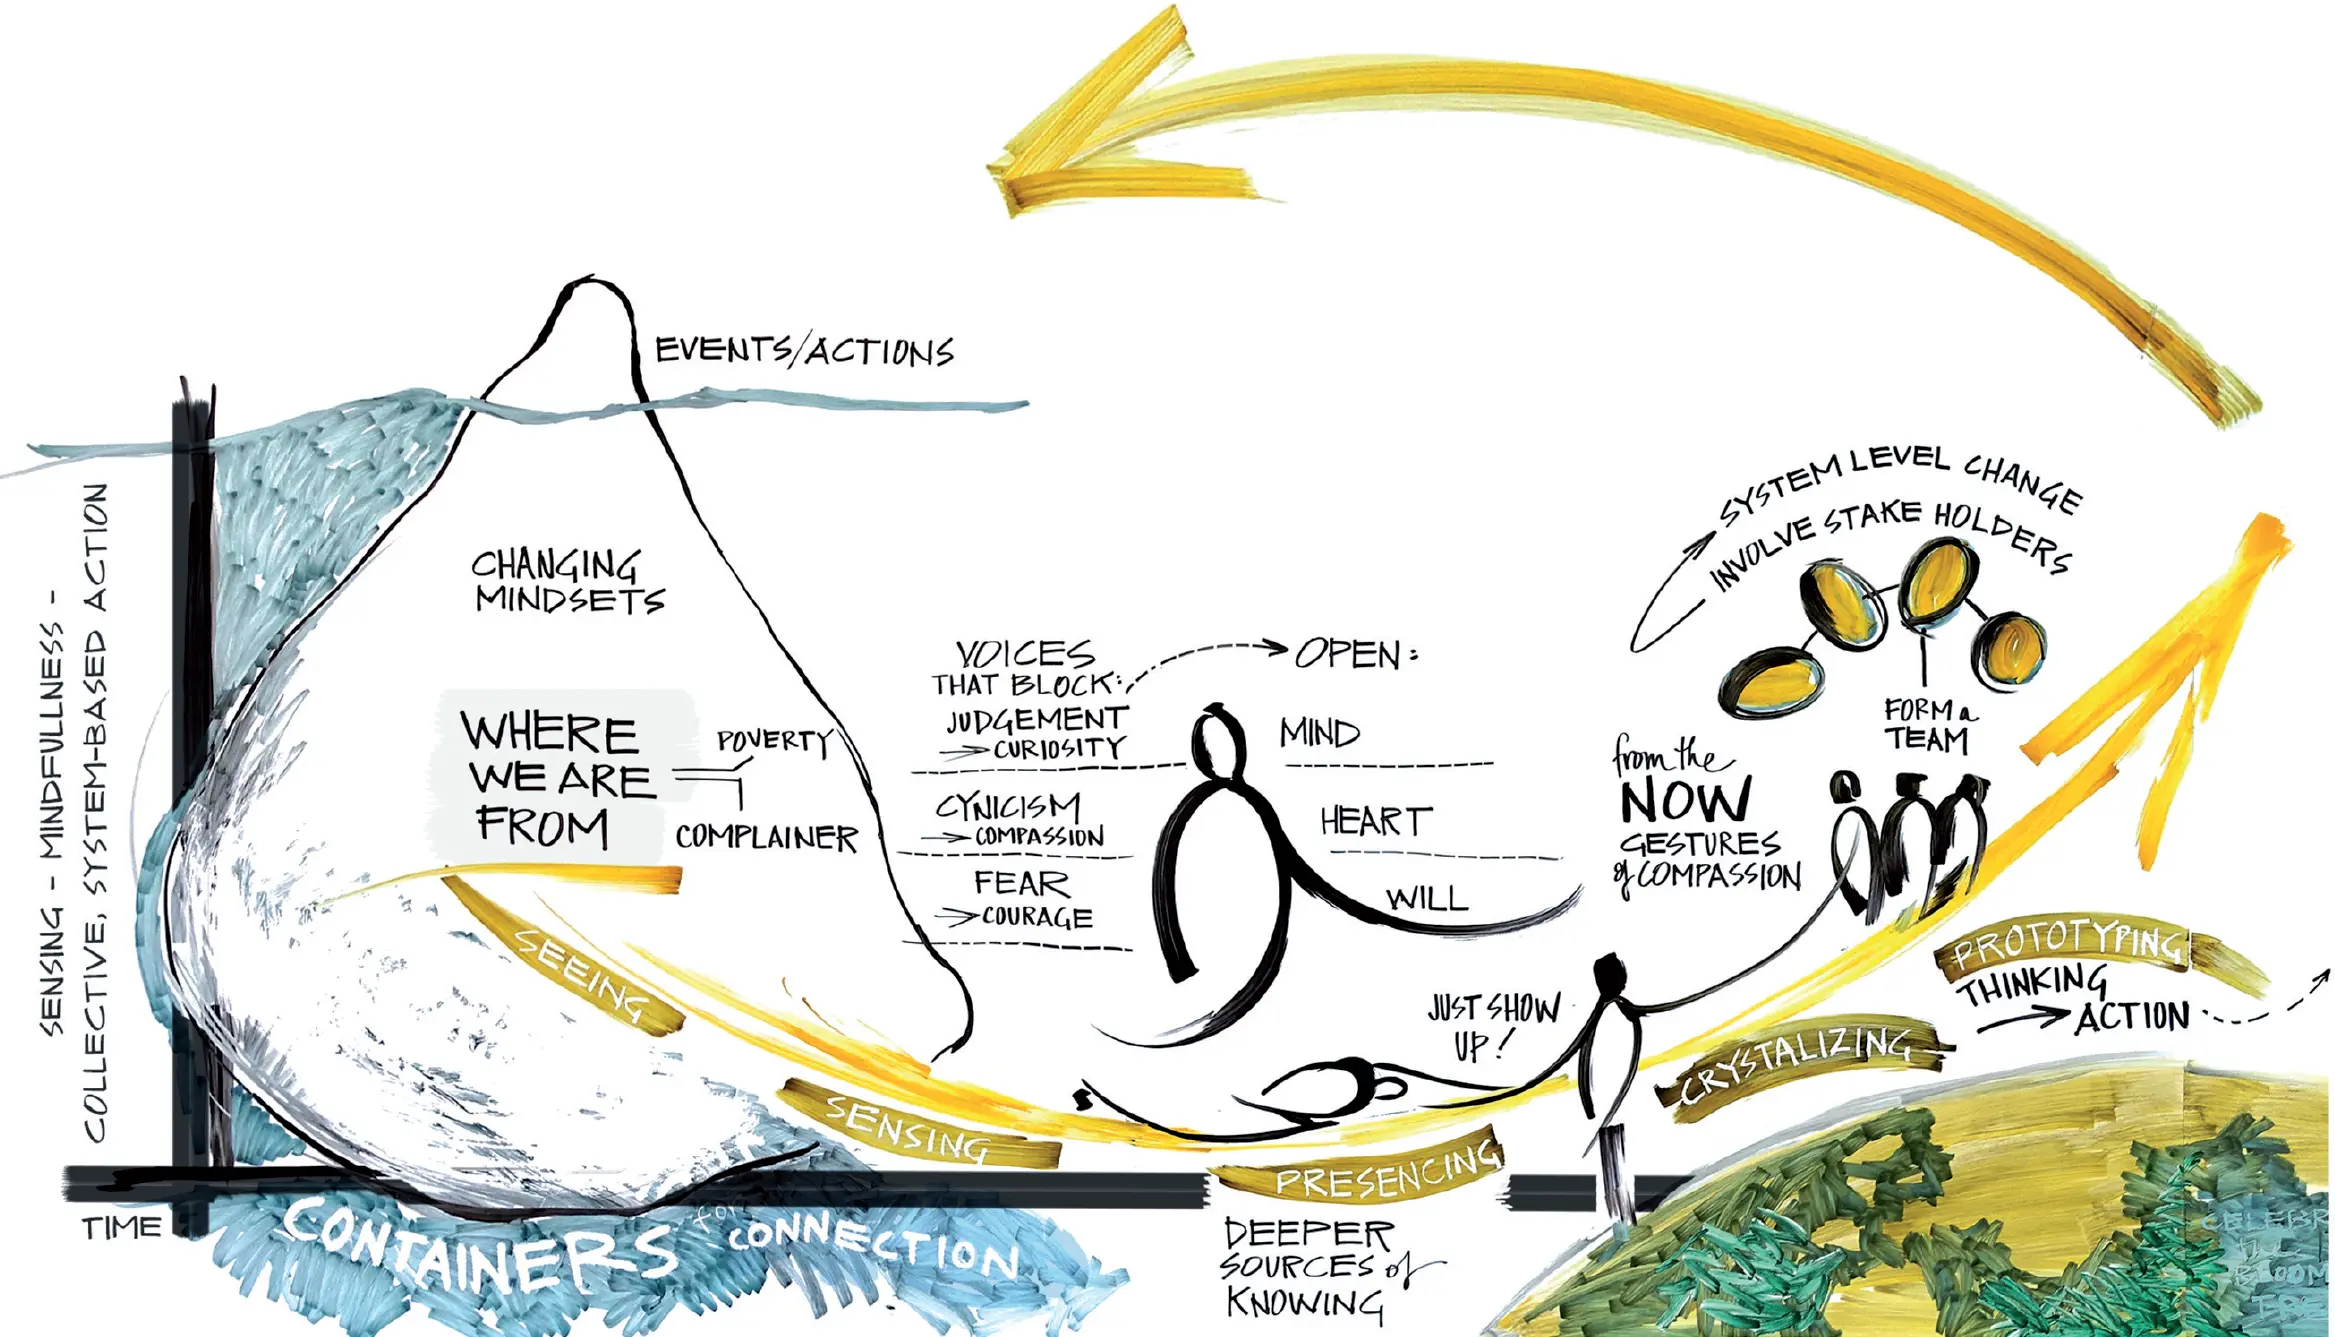 EVENTS/ACTIONS
SENSING - MINDFULLNESS -
COLLECTIVE, SYSTEM-BASED ACTION
CHANGING
MINDSETS
WHERE
WE ARE
FROM
POVERTY
COMPLAINER
VOICES
THAT BLOCK:
JUDGEMENT
CURIOSITY
CYNICISM
COMPASSION
FEAR
COURAGE
OPEN:
MIND
HEART
WILL
SYSTEM LEVEL CHANGE
INVOLVE STAKE HOLDERS
FORM a
TEAM
from the
NOW
GESTURES
of COMPASSION
JUST SHOW
UP!
SEEING
SENSING
PRESENCING
CRYSTALIZING
PROTOTYPING
THINKING
ACTION
DEEPER
SOURCES of
KNOWING
TIME
CONTAINERS for CONNECTION
CELEBR
the
BLOOM